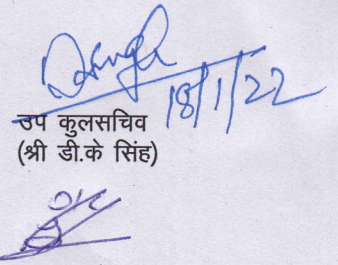 18/1/22
उप कुलसचिव
(श्री डी.के सिंह)